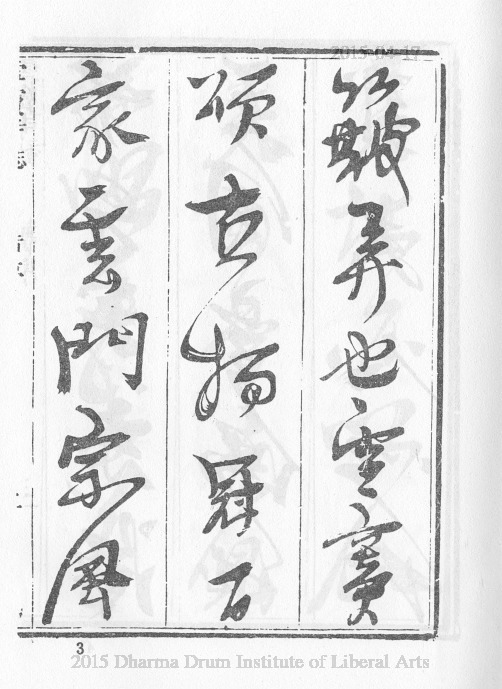 2015-04-17
簸弄也雪竇
頌古獨冠百
家雲門宗風
3
2015 Dharma Drum Institute of Liberal Arts